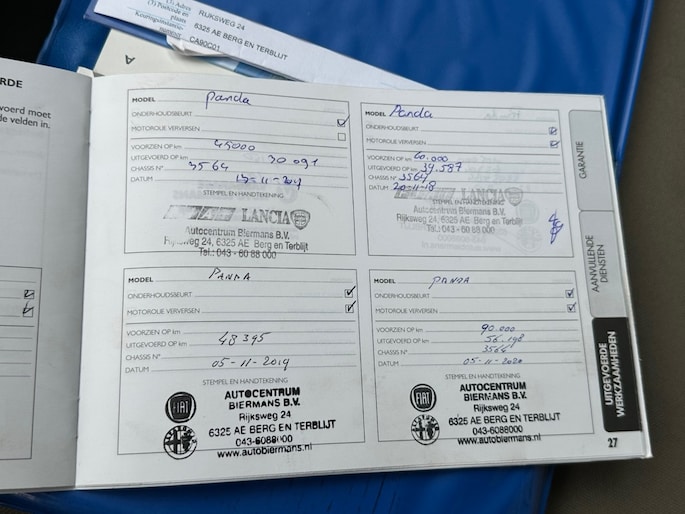 RIJKSWEG 24
6325 AE BERG EN TERBLIJT
CA90C01
A
RDE
voerd moet
de velden in.
MODEL Panda
ONDERHOUDSBEURT
MOTOROLIE VERVERSEN
VOORZIEN OP km 45000
UITGEVOERD OP km 30 091
CHASSIS N° 3564
DATUM
STEMPEL EN HANDTEKENING
LANCIA
Autocentrum Biermans B.V.
Rijksweg 24, 6325 AE Berg en Terblijt
Tel.: 043 - 60 88 000
MODEL Panda
ONDERHOUDSBEURT
MOTOROLIE VERVERSEN
VOORZIEN OP km 60.000
UITGEVOERD OP km 39.587
CHASSIS N° 3564
DATUM 20-11-18
STEMPEL EN HANDTEKENING
LANCIA
Autocentrum Biermans B.V.
Rijksweg 24, 6325 AE Berg en Terblijt
Tel.: 043 - 60 88 000
MODEL PANDA
ONDERHOUDSBEURT
MOTOROLIE VERVERSEN
VOORZIEN OP km
UITGEVOERD OP km 48395
CHASSIS N°
DATUM 05-11-2019
STEMPEL EN HANDTEKENING
FIAT
AUTOCENTRUM
BIERMANS B.V.
Rijksweg 24
6325 AE BERG EN TERBLIJT
043-6088000
www.autobiermans.nl
MODEL PANDA
ONDERHOUDSBEURT
MOTOROLIE VERVERSEN
VOORZIEN OP km 90.000
UITGEVOERD OP km 56.198
CHASSIS N° 3564
DATUM 05-11-2020
STEMPEL EN HANDTEKENING
FIAT
AUTOCENTRUM
BIERMANS B.V.
Rijksweg 24
6325 AE BERG EN TERBLIJT
043-6088000
www.autobiermans.nl
GARANTIE
AANVULLENDE
DIENSTEN
UITGEVOERDE
WERKZAAMHEDEN
27